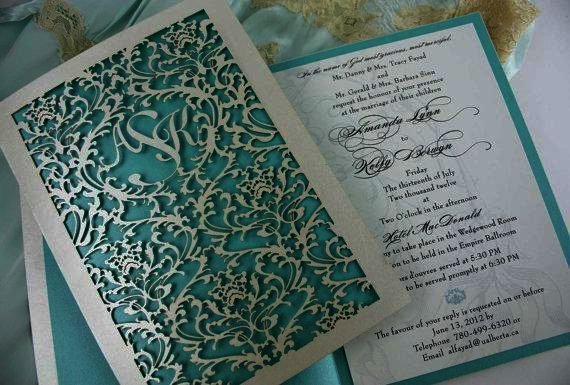 In the name of God most gracious, most merciful.
Mr. Danny & Mrs. Tracy Fayad
and
Mr. Gerald & Mrs. Barbara Sinn
request the honour of your presence
at the marriage of their children
Amanda Lynn
to
Friday
The thirteenth of July
Two thousand twelve
at
Two O'clock in the afternoon
Hotel MacDonald
to take place in the Wedgewood Room
to be held in the Empire Ballroom
served at 5:30 PM
be served promptly at 6:30 PM
The favour of your reply is requested on or before
June 13, 2012 by
Telephone 780.499.6320 or
Email alfayad@ualberta.ca